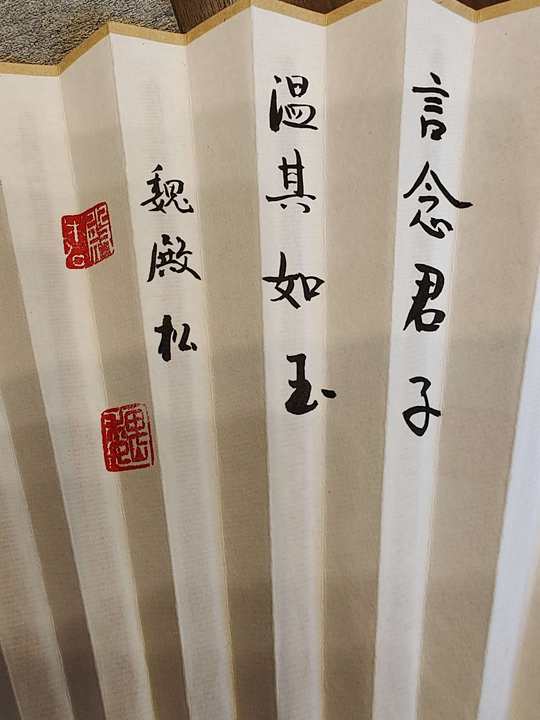 言念君子
温其如玉
魏殿松